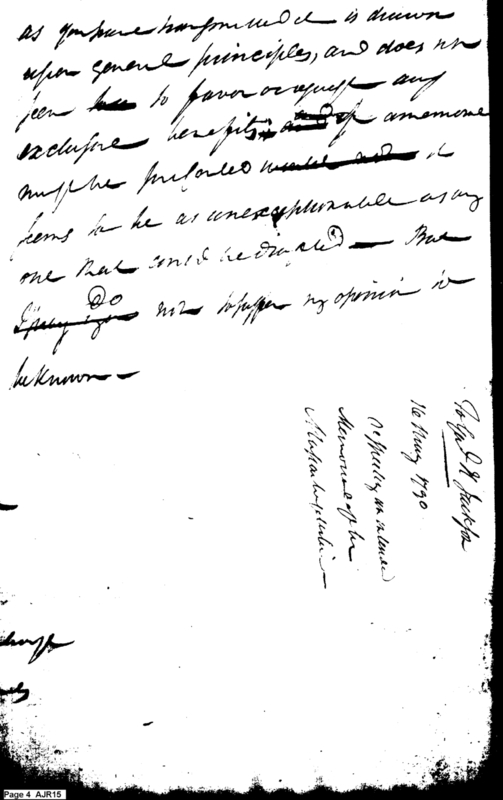 as you have transmitted it is drawn
upon general principles, and does not
seem to favor or request any
exclusive benefits, and if a memorial
must be preferred it
seems to be as unexceptionable as any
one that could be But
Do not suffer my opinion to
be known —
To Genl H Jackson
16 May 1790
respecting an intended
Memorial of the
Massachusetts line
Page 4 AJR15